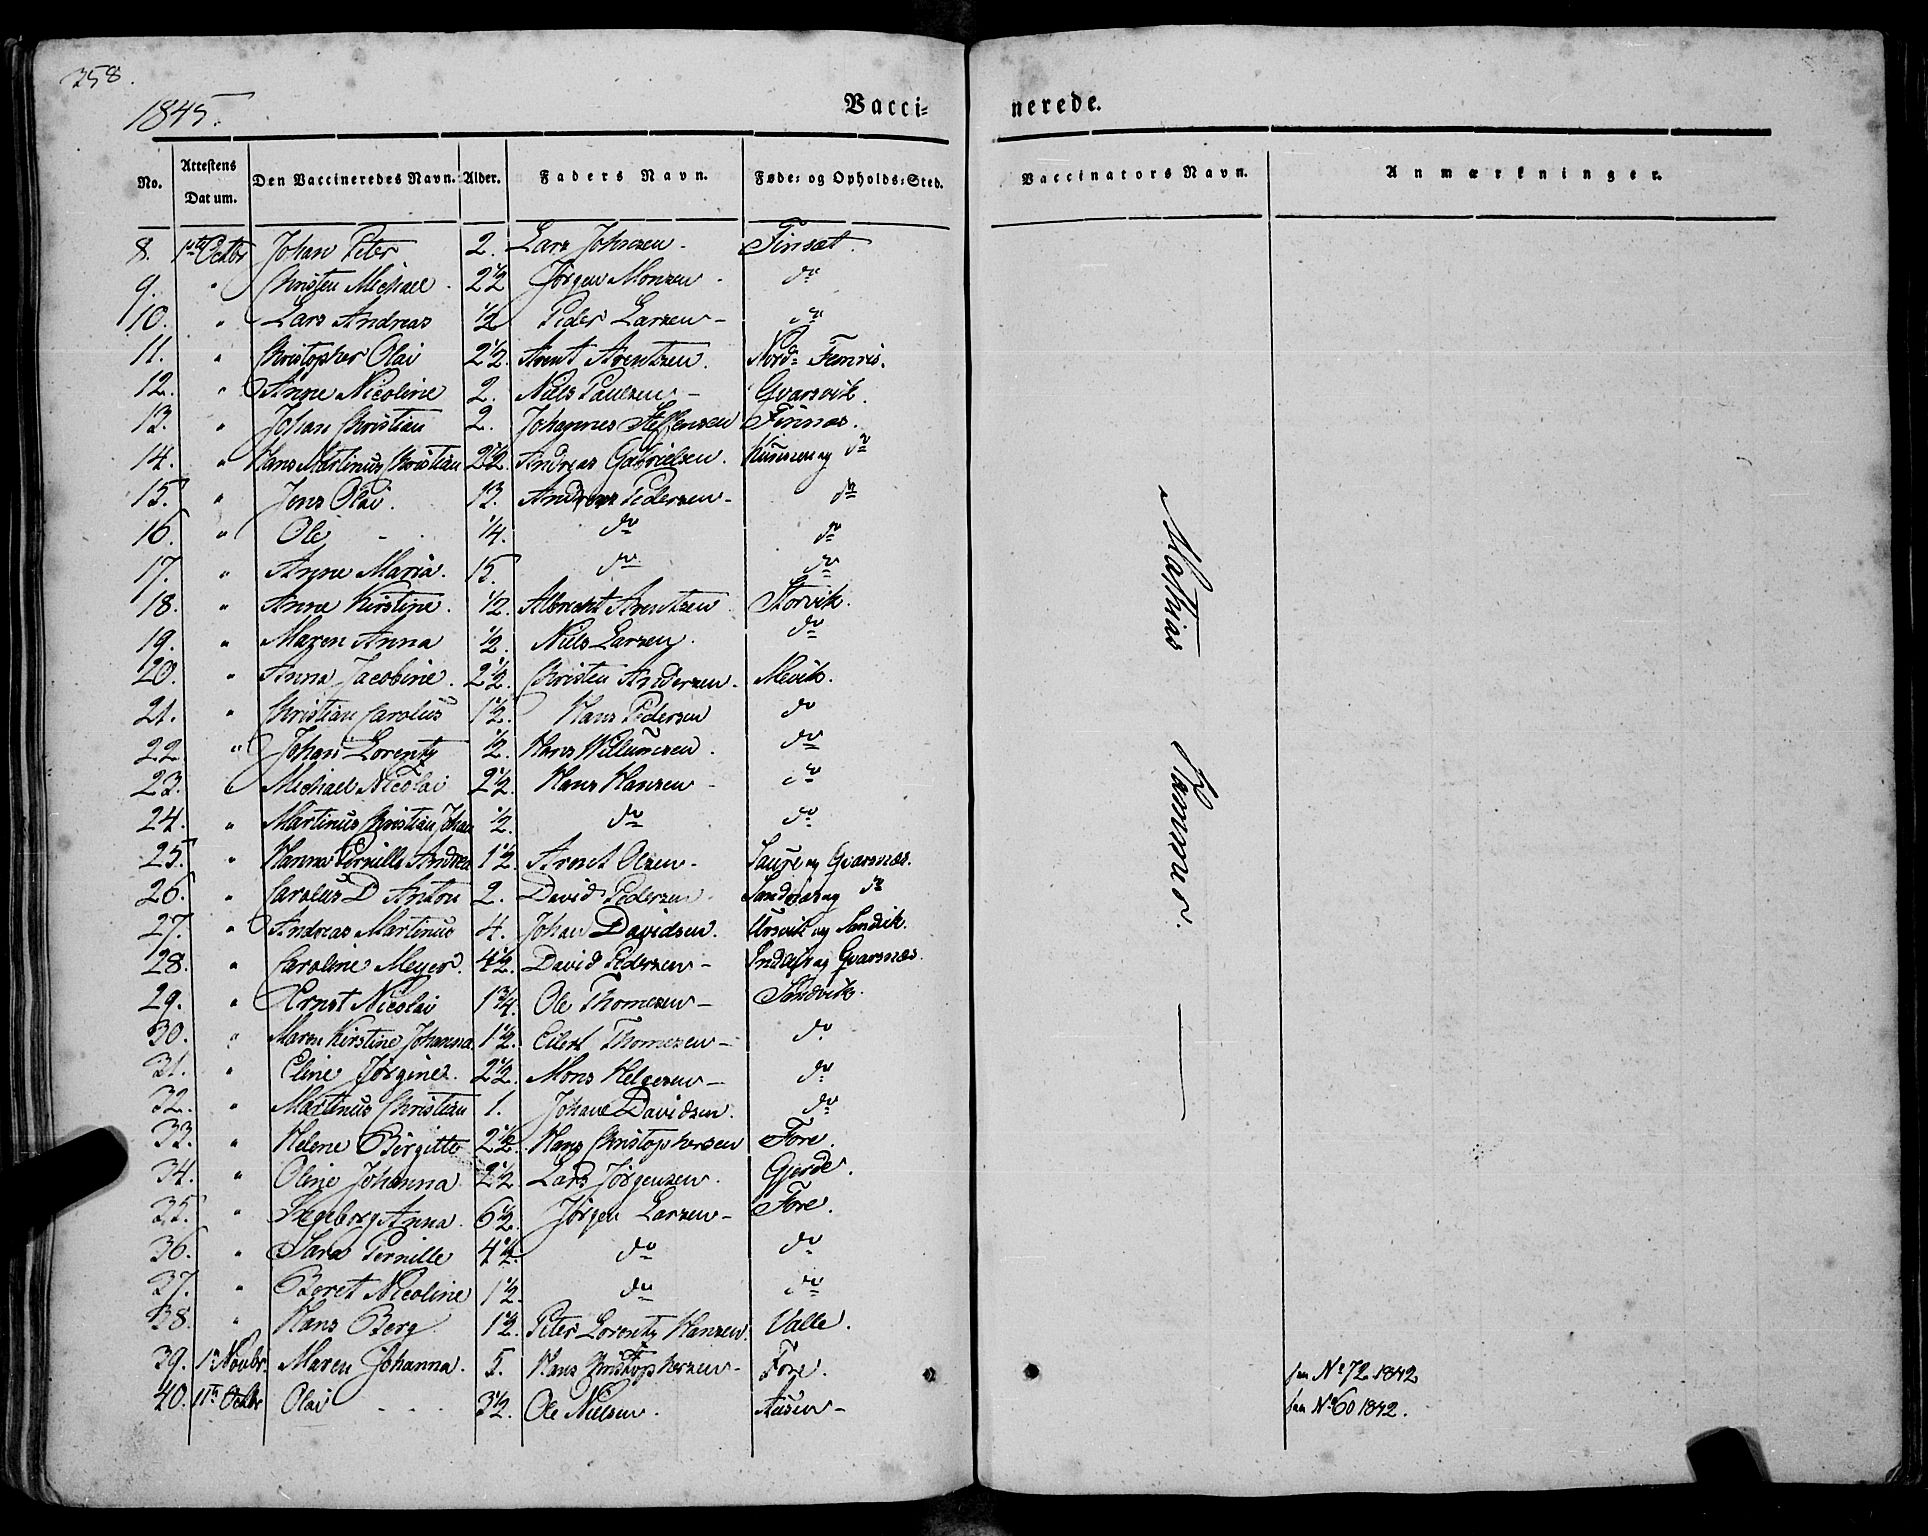 358.
1845.
Vacci-nerede.
No. Attestens Datum. Den Vaccineredes Navn. Alder. Faders Navn. Føde- og Opholds-Sted. Vaccinators Navn. Anmærkninger.
8. 1ste Octbr Johan Peter 2. Lars Johnsen - Finset.
9. " Christen Michael. 2 1/2 Jørgen Monsen. do
10. " Lars Andreas 1/2 Peder Larsen - do
11. " Christopher Olai 2 1/2. Arent Arentzen. Nord- Femris.
12. " Anne Nicoline 2. Niels Paulsen - Gvarsvik.
13. " Johan Christian 2. Johannes Steffensen Finnæs.
14. " Hans Martinus Christian 2 1/2. Andreas Gabrielsen. og do
15. " Jens Olai. 13. Andreas Pedersen - do
16. " Ole - . 14. do do
17. " Anne Maria. 15. do do
18. " Anne Kirstine. 1/2. Albrecht Arentzen Storvik.
19. " Maren Anna 1/2. Niels Larsen. do
20. " Anna Jacobine. 2 1/2. Christen Andersen. Mevik.
21. " Christian Carolus 1 1/2. Hans Pedersen do
22. " Johan Lorentz 1/2. Hans Willumsen. do
23. " Michael Nicolai 2 1/2. Hans Hansen - do
24. " Martinus Christian Johan 1/2. do do
25. " Hanna Pernille Andrea 1 1/2 Arnt Olsen - Saure og Gvarsnæs.
26. " Carolus D Anton 2. David Pedersen. og do
27. " Andreas Martinus 4. Johan Davidsen. Ursvik og Sandvik.
28. " Caroline Meyer. 4 1/2. David Pedersen - og Gvarsnæs.
29. " Ernst Nicolai 1 3/4. Ole Thomesen - Sandvik.
30. " Maren Kirstine Johanna 1 1/2. Eilert Thomesen - do
31. " Eline Jørgine. 2 1/2. Mons Helgesen - do
32. " Martinus Christian 1. Johan Davidsen. do
33. " Helene Birgitte 2 1/2. Hans Christophersen Fore.
34. " Oline Johanna 2 1/2 Lars Jørgensen. Gjerde.
35. " Ingeborg Anna. 6 1/2. Jørgen Larsen - Fore.
36. " Sara Pernille 4 1/2. do do
37. " Beret Nicoline 1 1/2. do do
38. " Hans Berg. 1 1/2. Peter Lorentz Hansen. Valle.
39. 1te Novbr. Maren Johanna. 5. Hans Christophersen - Fore. No 72 1842
40. 11te Octbr Olai - - - 3 1/2. Ole Nielsen. Aasen - No 60 1842.
Mathias Rasmus. —